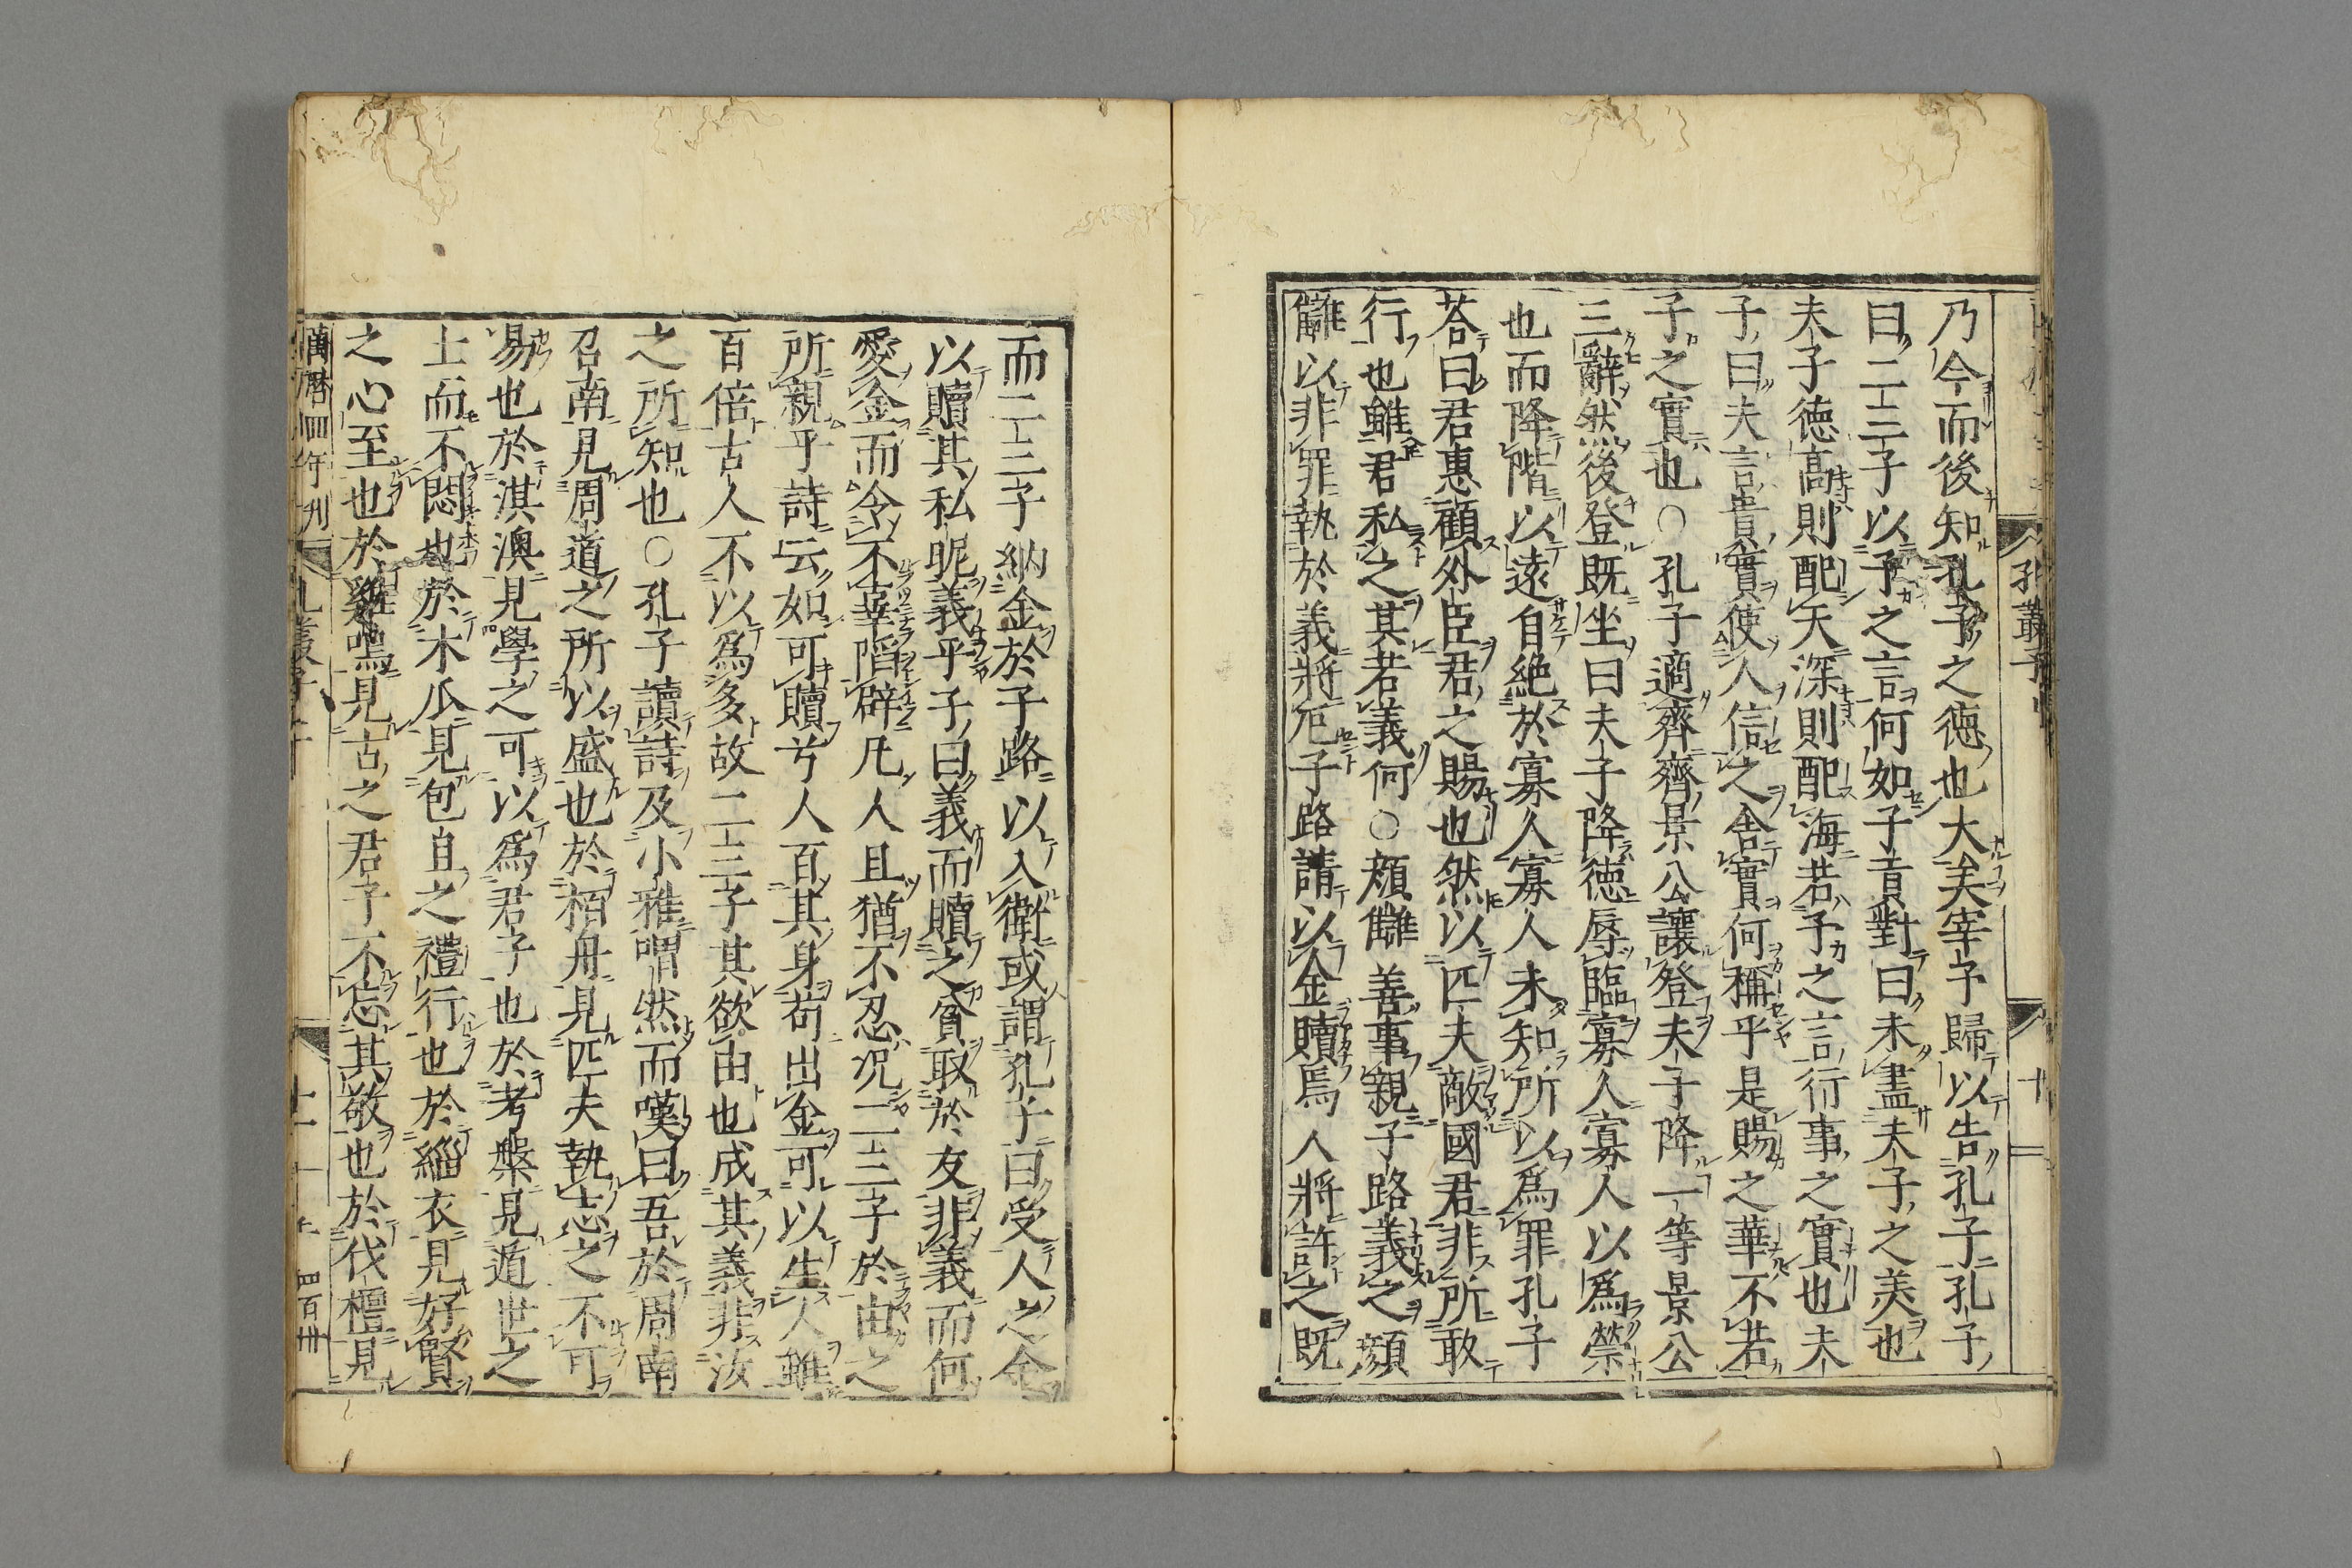 乃今而後知孔子之德也大矣宰予歸以告孔子孔子
曰二三子以予之言何如子貢對曰未盡夫子之美也
夫子德高則配天深則配海若予之言行事之實也夫
子曰夫言貴實使人信之舍實何稱乎是賜之華不若
予之實也○孔子適齊齊景公讓登夫子降一等景公
三辭然後登既坐曰夫子降德辱臨寡人寡人以爲榮
也而降階以遠自絶於寡人寡人未知所以爲罪孔子
荅曰君惠顧外臣君之賜也然以匹夫敵國君非所敢
行也雖君私之其若義何○顏讎善事親子路義之顏
讎以非罪執於義將厄子路請以金贖焉人將許之既
孔叢子
十
而二三子納金於子路以入衛或謂孔子曰受人之金
以贖其私昵義乎子曰義而贖之貧取於友非義而何
愛金而令不辜陷辟凡人且猶不忍況二三子於由之
所親乎詩云如可贖兮人百其身苟出金可以生人雖
百倍古人不以爲多故二三子其欲由也成其義非汝
之所知也○孔子讀詩及小雅喟然而嘆曰吾於周南
召南見周道之所以盛也於栢舟見匹夫執志之不可
易也於淇澳見學之可以爲君子也於考槃見遁世之
士而不悶也於木瓜見包且之禮行也於緇衣見好賢
之心至也於雞鳴見古之君子不忘其敬也於伐檀見
萬曆四年刊
孔叢子上
十一